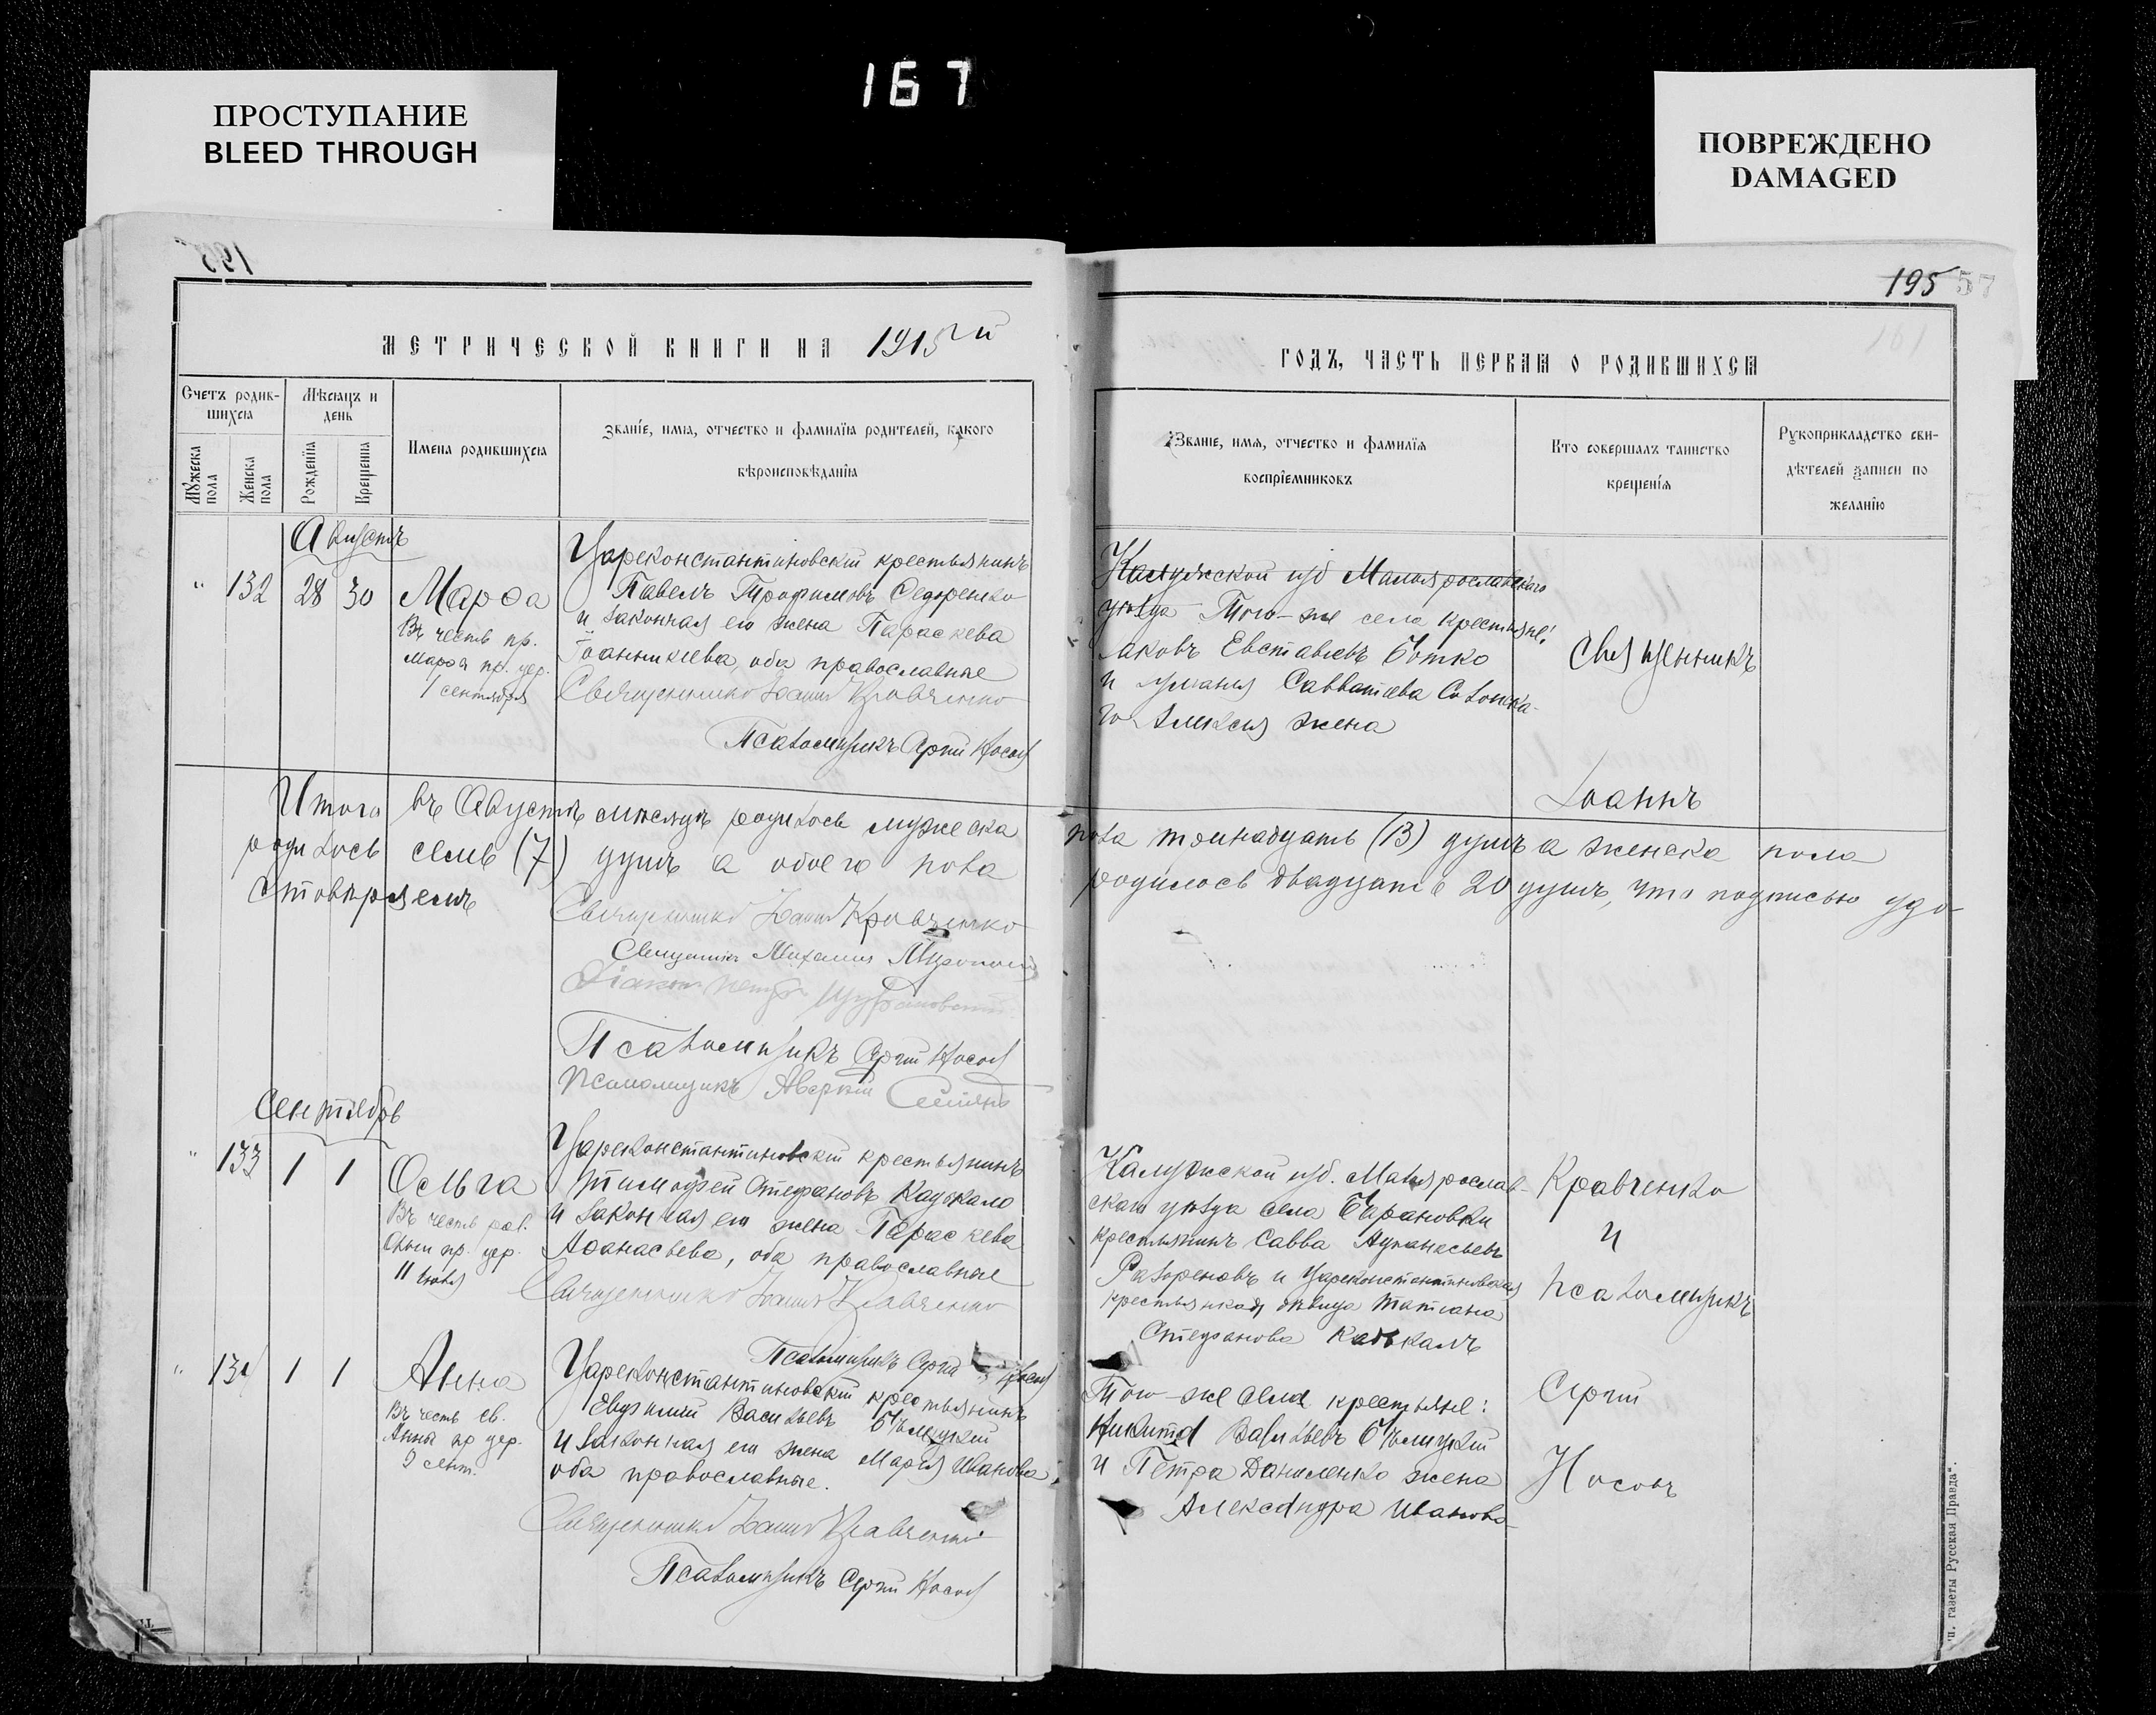 167
ПРОСТУПАНИЕ
BLEED THROUGH
ПОВРЕЖДЕНО
DAMAGED
195
МЕТРИЧЕСКОЙ КНИГИ НА 1915 й
Счетъ родившихся
Мѣсяцъ и день
Имена родившихся
Званіе, имя, отчество и фамилія родителей, какого
вѣроисповѣданія
Мужеска пола
Женска пола
Рожденія
Крещенія
Августъ
132 28 30
Марѳа
Въ честь пр.
Марѳы пр. цер.
1 сентября
Цареконстантиновскій крестьянинъ
Павелъ Трофимовъ Федоренко
и законная его жена Параскева
Іоанникіева, оба православные
Священникъ Іоаннъ Кравченко
Псаломщикъ Сергій Носовъ
Итого въ Августѣ мѣсяцѣ родилось мужеска
родилось семь (7) душъ а обоего пола
стовѣряемъ
Священникъ Іоаннъ Кравченко
Священникъ Михаилъ
Діаконъ Петръ
Псаломщикъ Сергій Носовъ
Псаломщикъ Аверкій
Сентябрь
133 1 1
Ольга
Въ честь рав.
Ольги пр. цер.
11 Іюля
Цареконстантиновскій крестьянинъ
Тимофей Стефановъ Кадькало
и законная его жена Параскева
Аѳанасьева, оба православные
Священникъ Іоаннъ Кравченко
Псаломщикъ Сергій Носовъ
134 1 1
Анна
Въ честь св.
Анны пр цер.
9 сент.
Цареконстантиновскій крестьянинъ
Евфимій Васильевъ Бѣлицкій
и законная его жена Марія Иванова,
оба православные.
Священникъ Іоаннъ Кравченко
Псаломщикъ Сергій Носовъ
195 57
161
ГОДЪ, ЧАСТЬ ПЕРВАЯ О РОДИВШИХСЯ
Званіе, имя, отчество и фамилія
воспріемниковъ
Кто совершалъ таинство
крещенія
Рукоприкладство сви-
дѣтелей записи по
желанію
Калужской губ Малоярославскаго
уѣзда Того-же села крестьяне:
Яковъ Евставіевъ Ботко
и Савватіева
Алексія жена
Священникъ
Іоаннъ
пола тринадцать (13) душъ а женска пола
родилось двадцать 20 душъ, что подписью удо-
Калужской губ. Малоярослав-
скаго уѣзда села Барановки
крестьянинъ Савва
и Цареконстантиновская
крестьянская дѣвица Татіана
Стефанова Кадькалъ
Кравченко
и
псаломщикъ
Того-же села крестьяне:
Никита Васильевъ Бѣлицкій
и Петра Даниленко жена
Александра Иванова
Сергій
Носовъ
п. газеты Русская Правда".